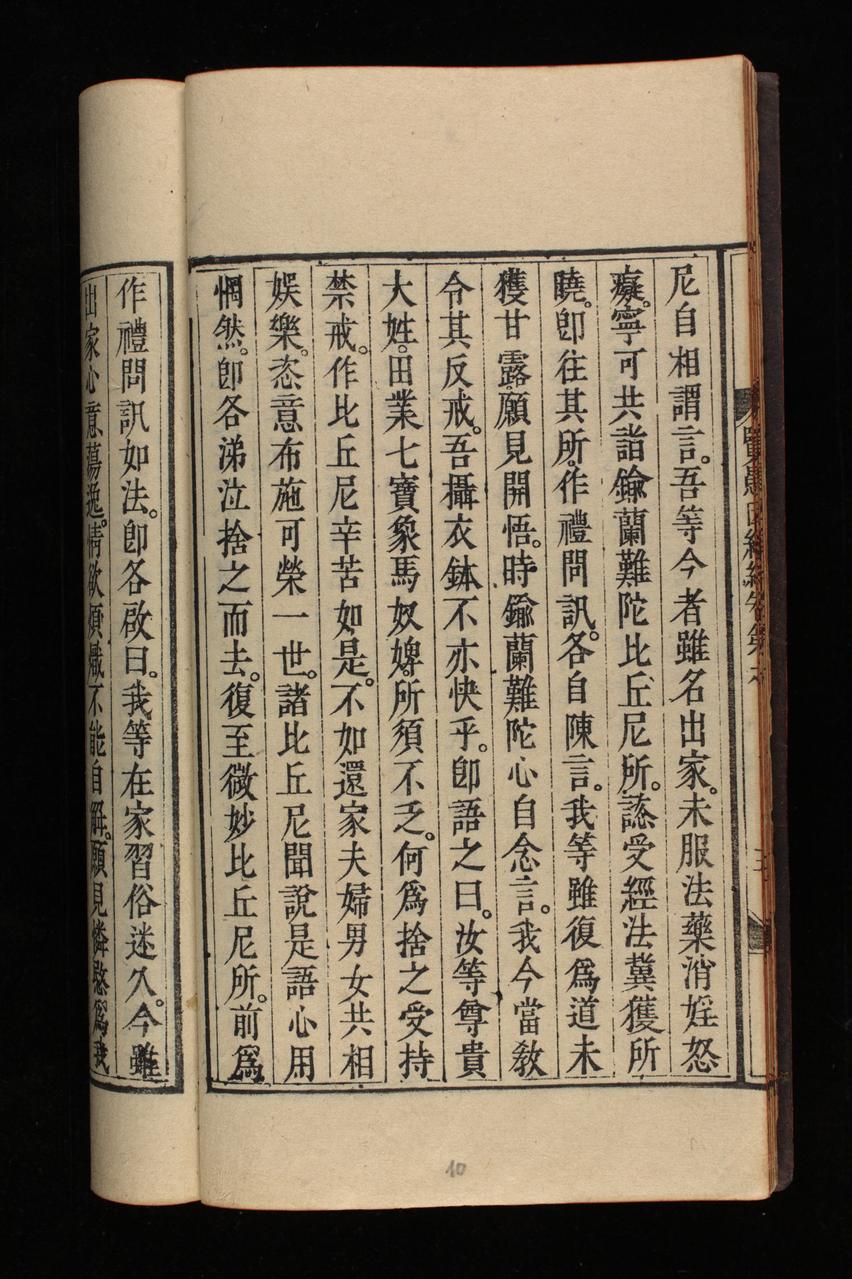 賢愚因緣經卷第
尼自相謂言。吾等今者雖名出家。未服法藥消婬怒
癡。寧可共詣鍮蘭難陀比丘尼所。諮受經法冀獲所
曉。卽往其所。作禮問訊。各自陳言。我等雖復爲道未
獲甘露。願見開悟。時鍮蘭難陀心自念言。我今當敎
令其反戒。吾攝衣鉢不亦快乎。卽語之曰。汝等尊貴
大姓。田業七寶象馬奴婢。所須不乏。何爲捨之受持
禁戒。作比丘尼辛苦如是。不如還家夫婦男女共相
娛樂。恣意布施可榮一世。諸比丘尼聞說是語心用
惘然。卽各涕泣捨之而去。復至微妙比丘尼所。前爲
作禮問訊如法。卽各啟曰。我等在家習俗迷久。今雖
出家心意蕩逸。情欲煩熾不能自解。願見憐愍爲我
10